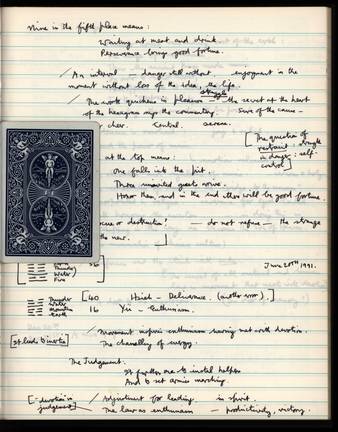 Nine in the fifth place means:
Waiting at meat and drink.
Perseverance brings good fortune.
/ An interval — danger still without, enjoyment in the
moment without loss of the idea, the life.
struggle
/ The work quickens in pleasure — the secret at the heart
of the hexagram says the commentary. Sure of the cause —
cheer. Central. serene.
[The question of
restraint, struggle
in danger; self-
control]
at the top means:
One falls into the pit.
Three uninvited guests arrive.
Honor them, and in the end there will be good fortune.
or destruction! — do not refuse — the strange
the new. ]
June 20th 1991.
Thunder
Water
Fire
Thunder
Water
Mountain
Earth
[40 Hsieh - Deliverance. (another error).]
16 Yü - Enthusiasm.
/ Movement inspires enthusiasm having met with devotion.
[It leads to inertia]
The channelling of energy.
The Judgement:
It furthers one to instal helpers
And to set armies marching.
[- devotion is
judgement]
/ Adjustment for leading. in spirit.
The law as enthusiasm — productivity, victory.